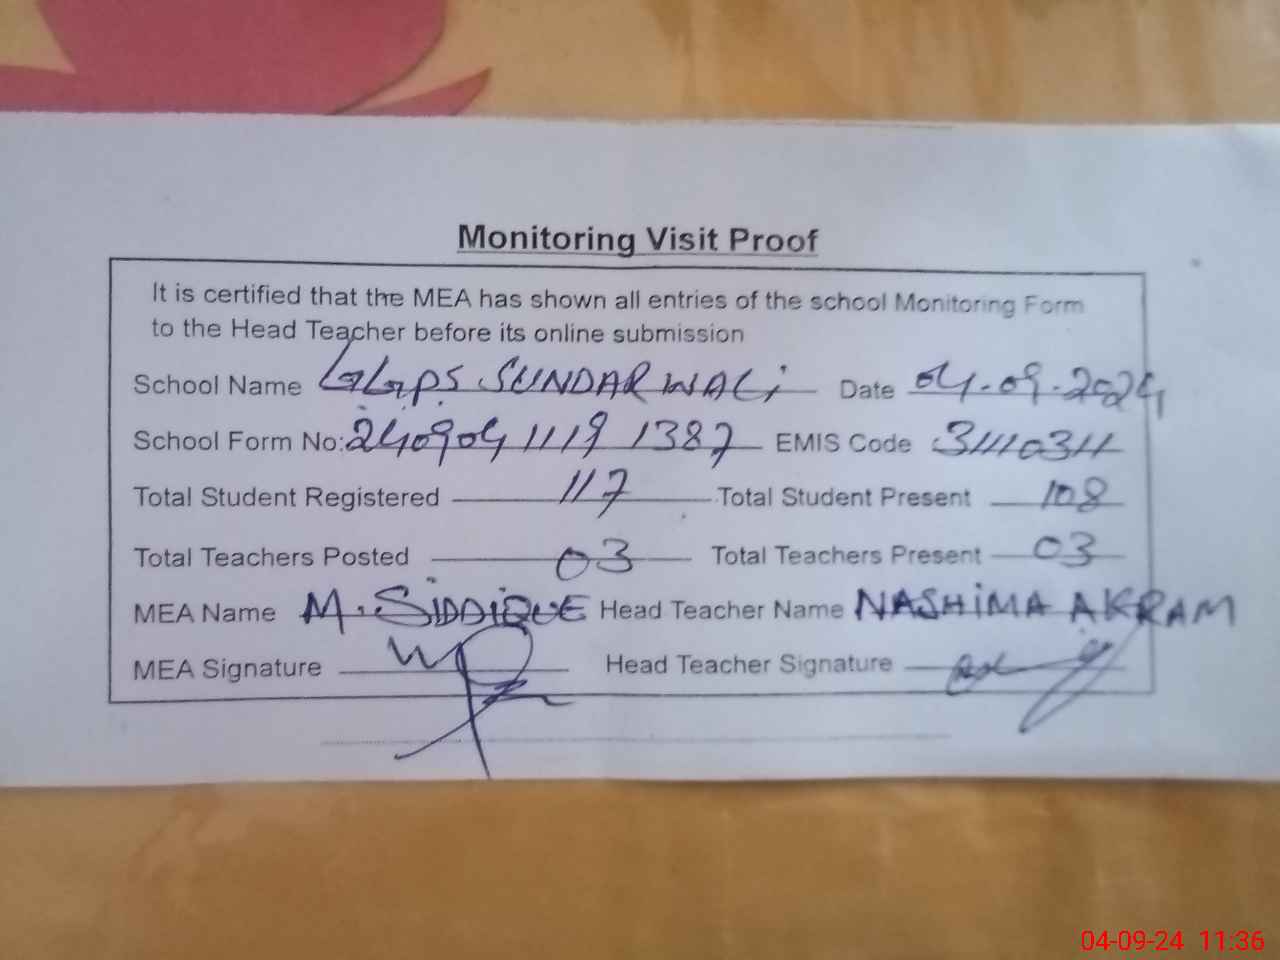 Monitoring Visit Proof
It is certified that the MEA has shown all entries of the school Monitoring Form
to the Head Teacher before its online submission
School Name GGPS SUNDAR WALi Date 04.09.2024
School Form No: 240904 1119 1387 EMIS Code 31110311
Total Student Registered 117 Total Student Present 108
Total Teachers Posted 03 Total Teachers Present 03
MEA Name M. SIDDiQUE Head Teacher Name NASHiMA AKRAM
MEA Signature Head Teacher Signature
04-09-24 11:36